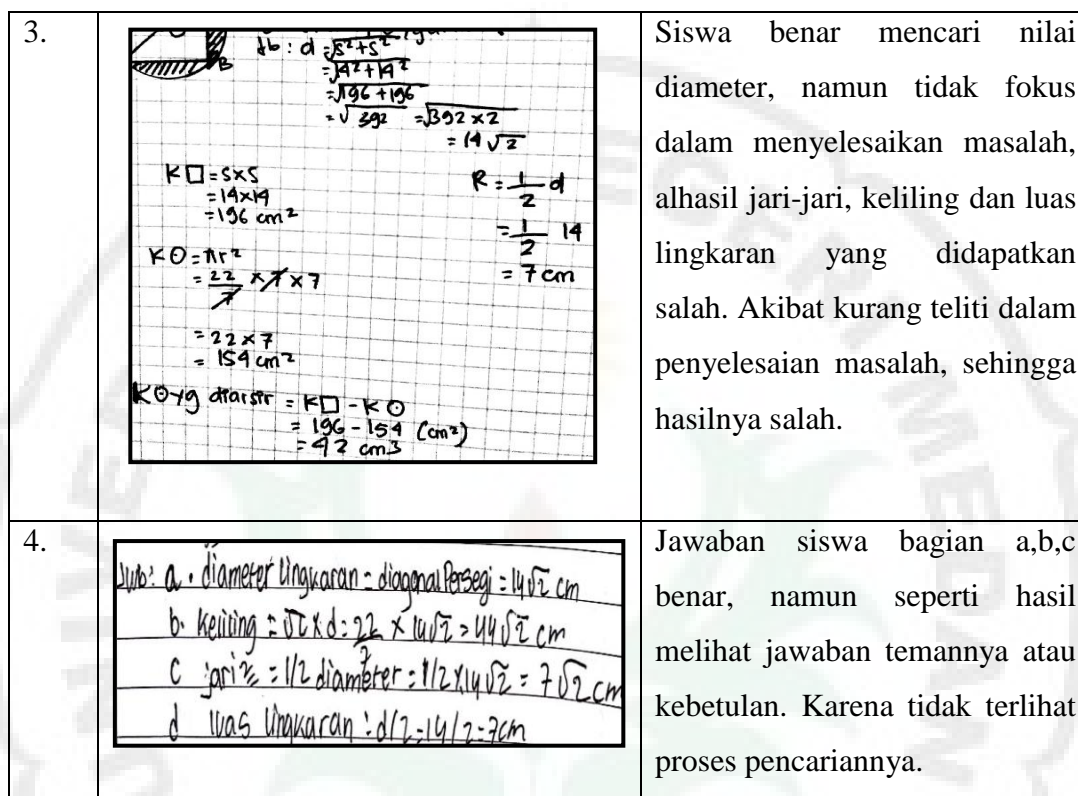 3.
B
Jb : d = √s²+s²
= √14²+14²
= √196 + 196
= √392 = √392 x 2
= 14 √2
K□ = s x s
= 14 x 14
= 196 cm²
R = 1/2 d
= 1/2 14
= 7 cm
K⊙ = πr²
= 22/7 x 7 x 7
= 22 x 7
= 154 cm²
K⊙ yg diarsir = K□ - K⊙
= 196 - 154 (cm²)
= 42 cm3
Siswa benar mencari nilai
diameter, namun tidak fokus
dalam menyelesaikan masalah,
alhasil jari-jari, keliling dan luas
lingkaran yang didapatkan
salah. Akibat kurang teliti dalam
penyelesaian masalah, sehingga
hasilnya salah.
4.
Jwb: a. diameter lingkaran = diagonal Persegi = 14√2 cm
b. keliling = π x d = 22/7 x 14√2 = 44√2 cm
c jari² = 1/2 diameter = 1/2 x 14√2 = 7√2 cm
d luas lingkaran : d/2 = 14/2 = 7cm
Jawaban siswa bagian a,b,c
benar, namun seperti hasil
melihat jawaban temannya atau
kebetulan. Karena tidak terlihat
proses pencariannya.